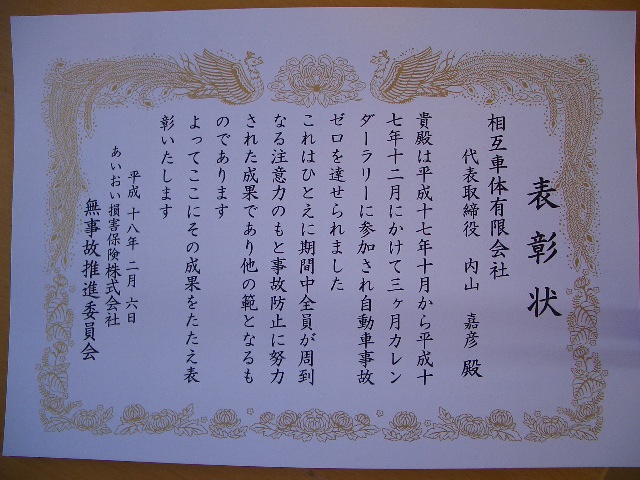 表彰状
相互車体有限会社
代表取締役 内山 嘉彦 殿
貴殿は平成十七年十月から平成十
七年十二月にかけて三ヶ月カレン
ダーラリーに参加され自動車事故
ゼロを達せられました
これはひとえに期間中全員が周到
なる注意力のもと事故防止に努力
された成果であり他の範となるも
のであります
よってここにその成果をたたえ表
彰いたします
平成 十八年 二月 六日
あいおい損害保険株式会社
無事故推進委員会